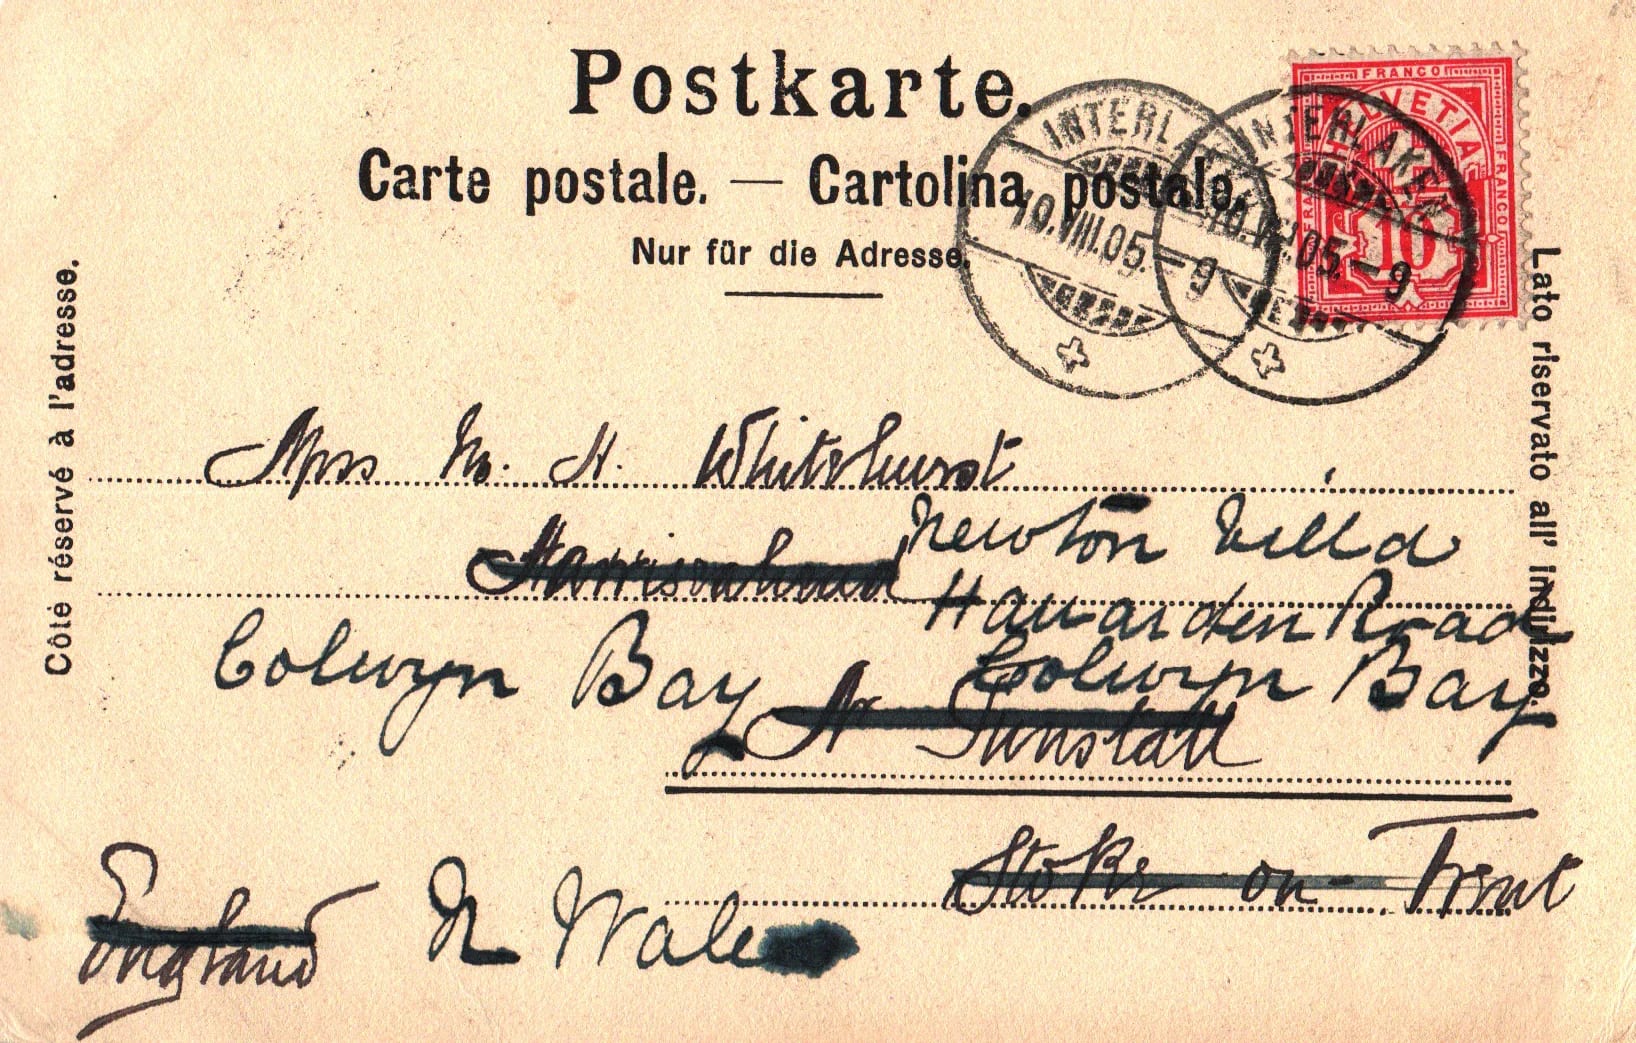 Postkarte.
Carte postale. — Cartolina postale.
Nur für die Adresse.
Côté réservé à l'adresse.
Lato riservato all' indirizzo.
FRANCO
HELVETIA
FRANCO
FRANCO
10
INTERLAKEN
10.VIII.05.–9
INTERLAKEN
10.VIII.05.–9
Miss M. H. Whitehurst
Harriseahead
Newton Villa
Hawarden Road
Colwyn Bay
Colwyn Bay
Nr Tunstall
Stoke on-Trent
England
N Wales